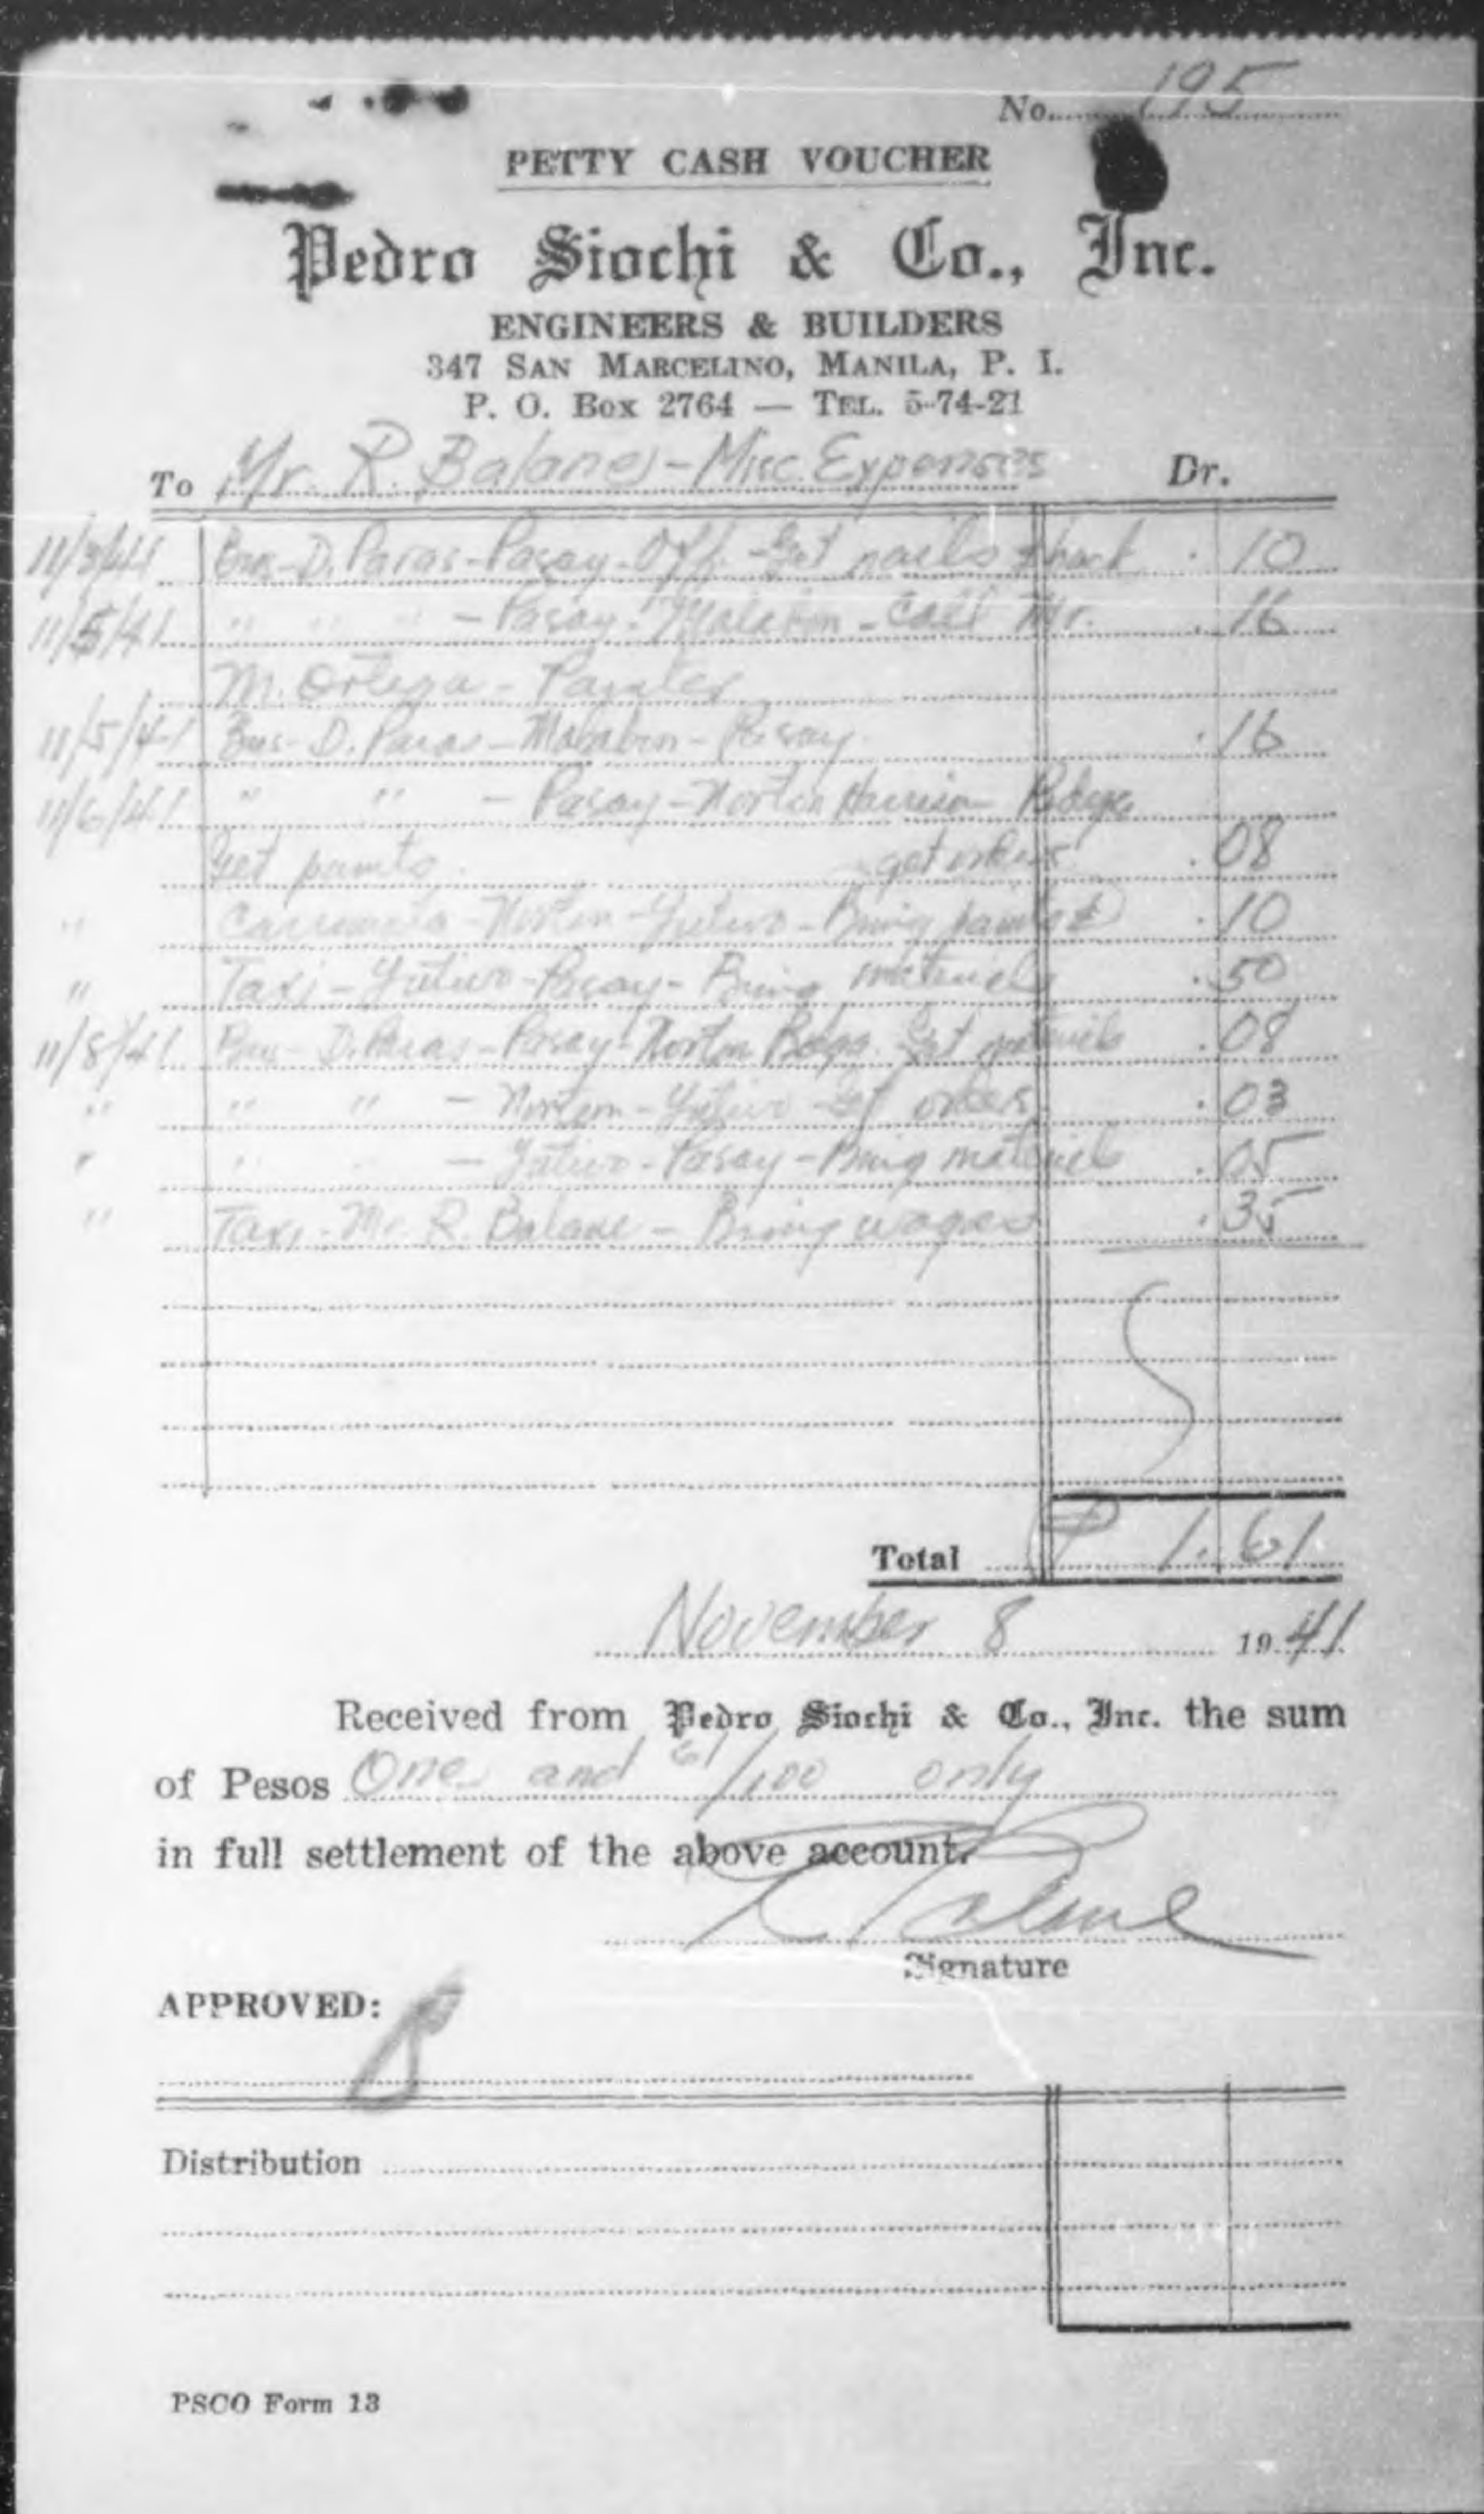 No. 195
PETTY CASH VOUCHER
Pedro Siochi & Co., Inc.
ENGINEERS & BUILDERS
347 SAN MARCELINO, MANILA, P. I.
P. O. Box 2764 — TEL. 5-74-21
To Mr. R. Balane - Misc. Expenses Dr.
11/3/41 Bus - D. Paras - Pasay - Off. - Get nails .10
11/5/41 " " " - Pasay - Malabon - Call Mr. .16
M. Ortega - Painter
11/5/41 Bus - D. Paras - Malabon - Pasay .16
11/6/41 " " - Pasay - Norton Harrison
Get paints get orders .08
" Carromata - Norton - Yutivo - Bring paints .10
" Taxi - Yutivo - Pasay - Bring materials .50
11/8/41 Bus - D. Paras - Pasay - Norton Get materials .08
" " " - Norton - Yutivo - Get orders .03
" " - Yutivo - Pasay - Bring materials .05
" Taxi - Mr. R. Balane - Bring wages .35
Total ₱ 1.61
November 8 1941
Received from Pedro Siochi & Co., Inc. the sum
of Pesos One and 61/100 only
in full settlement of the above account.
R Balane
Signature
APPROVED:
Distribution
PSCO Form 13